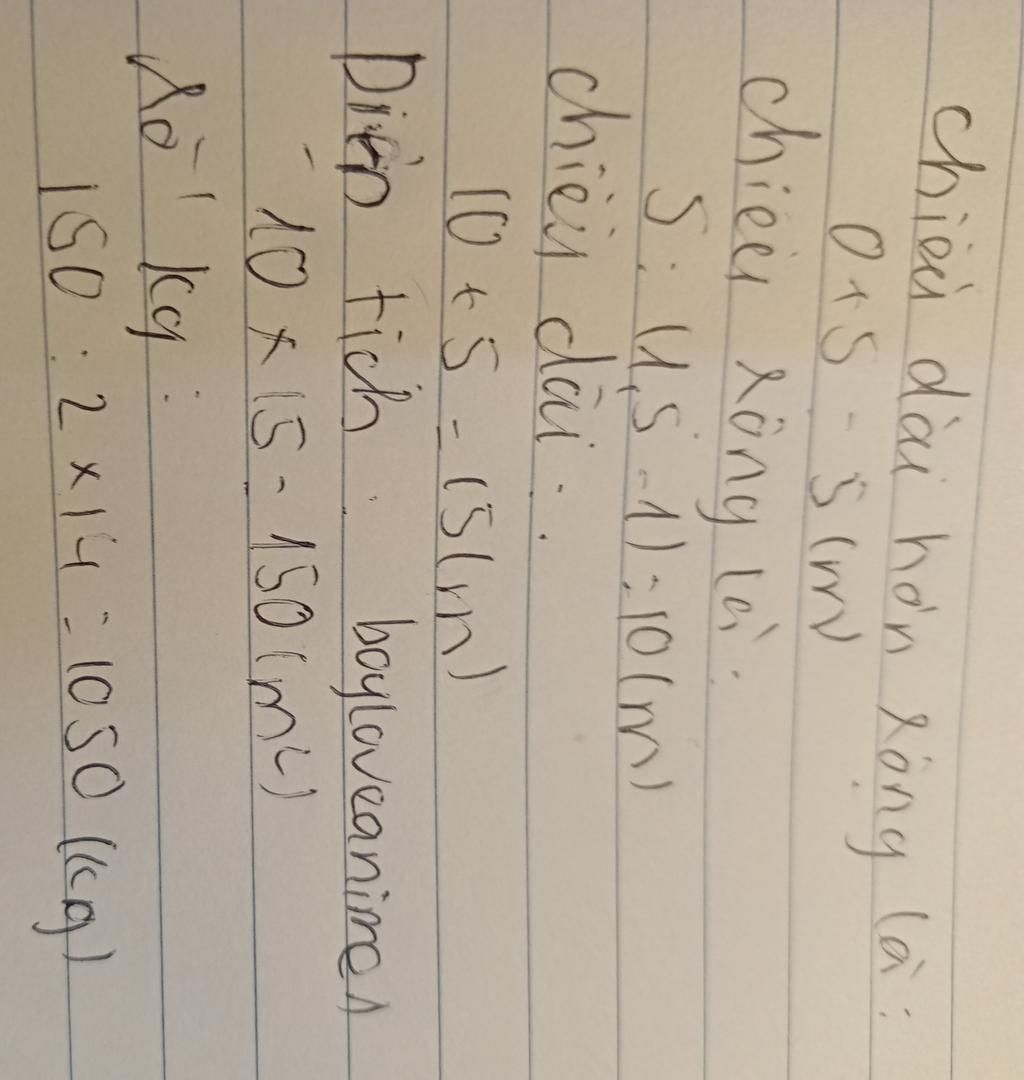 chiều dài hơn rộng là:
0 + 5 = 5 (m)
chiều rộng là:
5 : (1,5 - 1) = 10 (m)
chiều dài:
10 + 5 = 15 (m)
Diện tích: boyloveanime1
10 x 15 = 150 (m²)
kg:
150 : 2 x 14 = 1050 (kg)